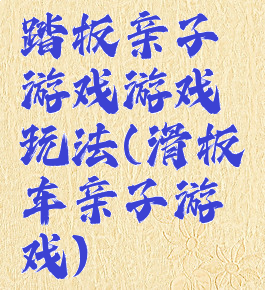 踏板亲子
游戏游戏
玩法(滑板
车亲子游
戏)